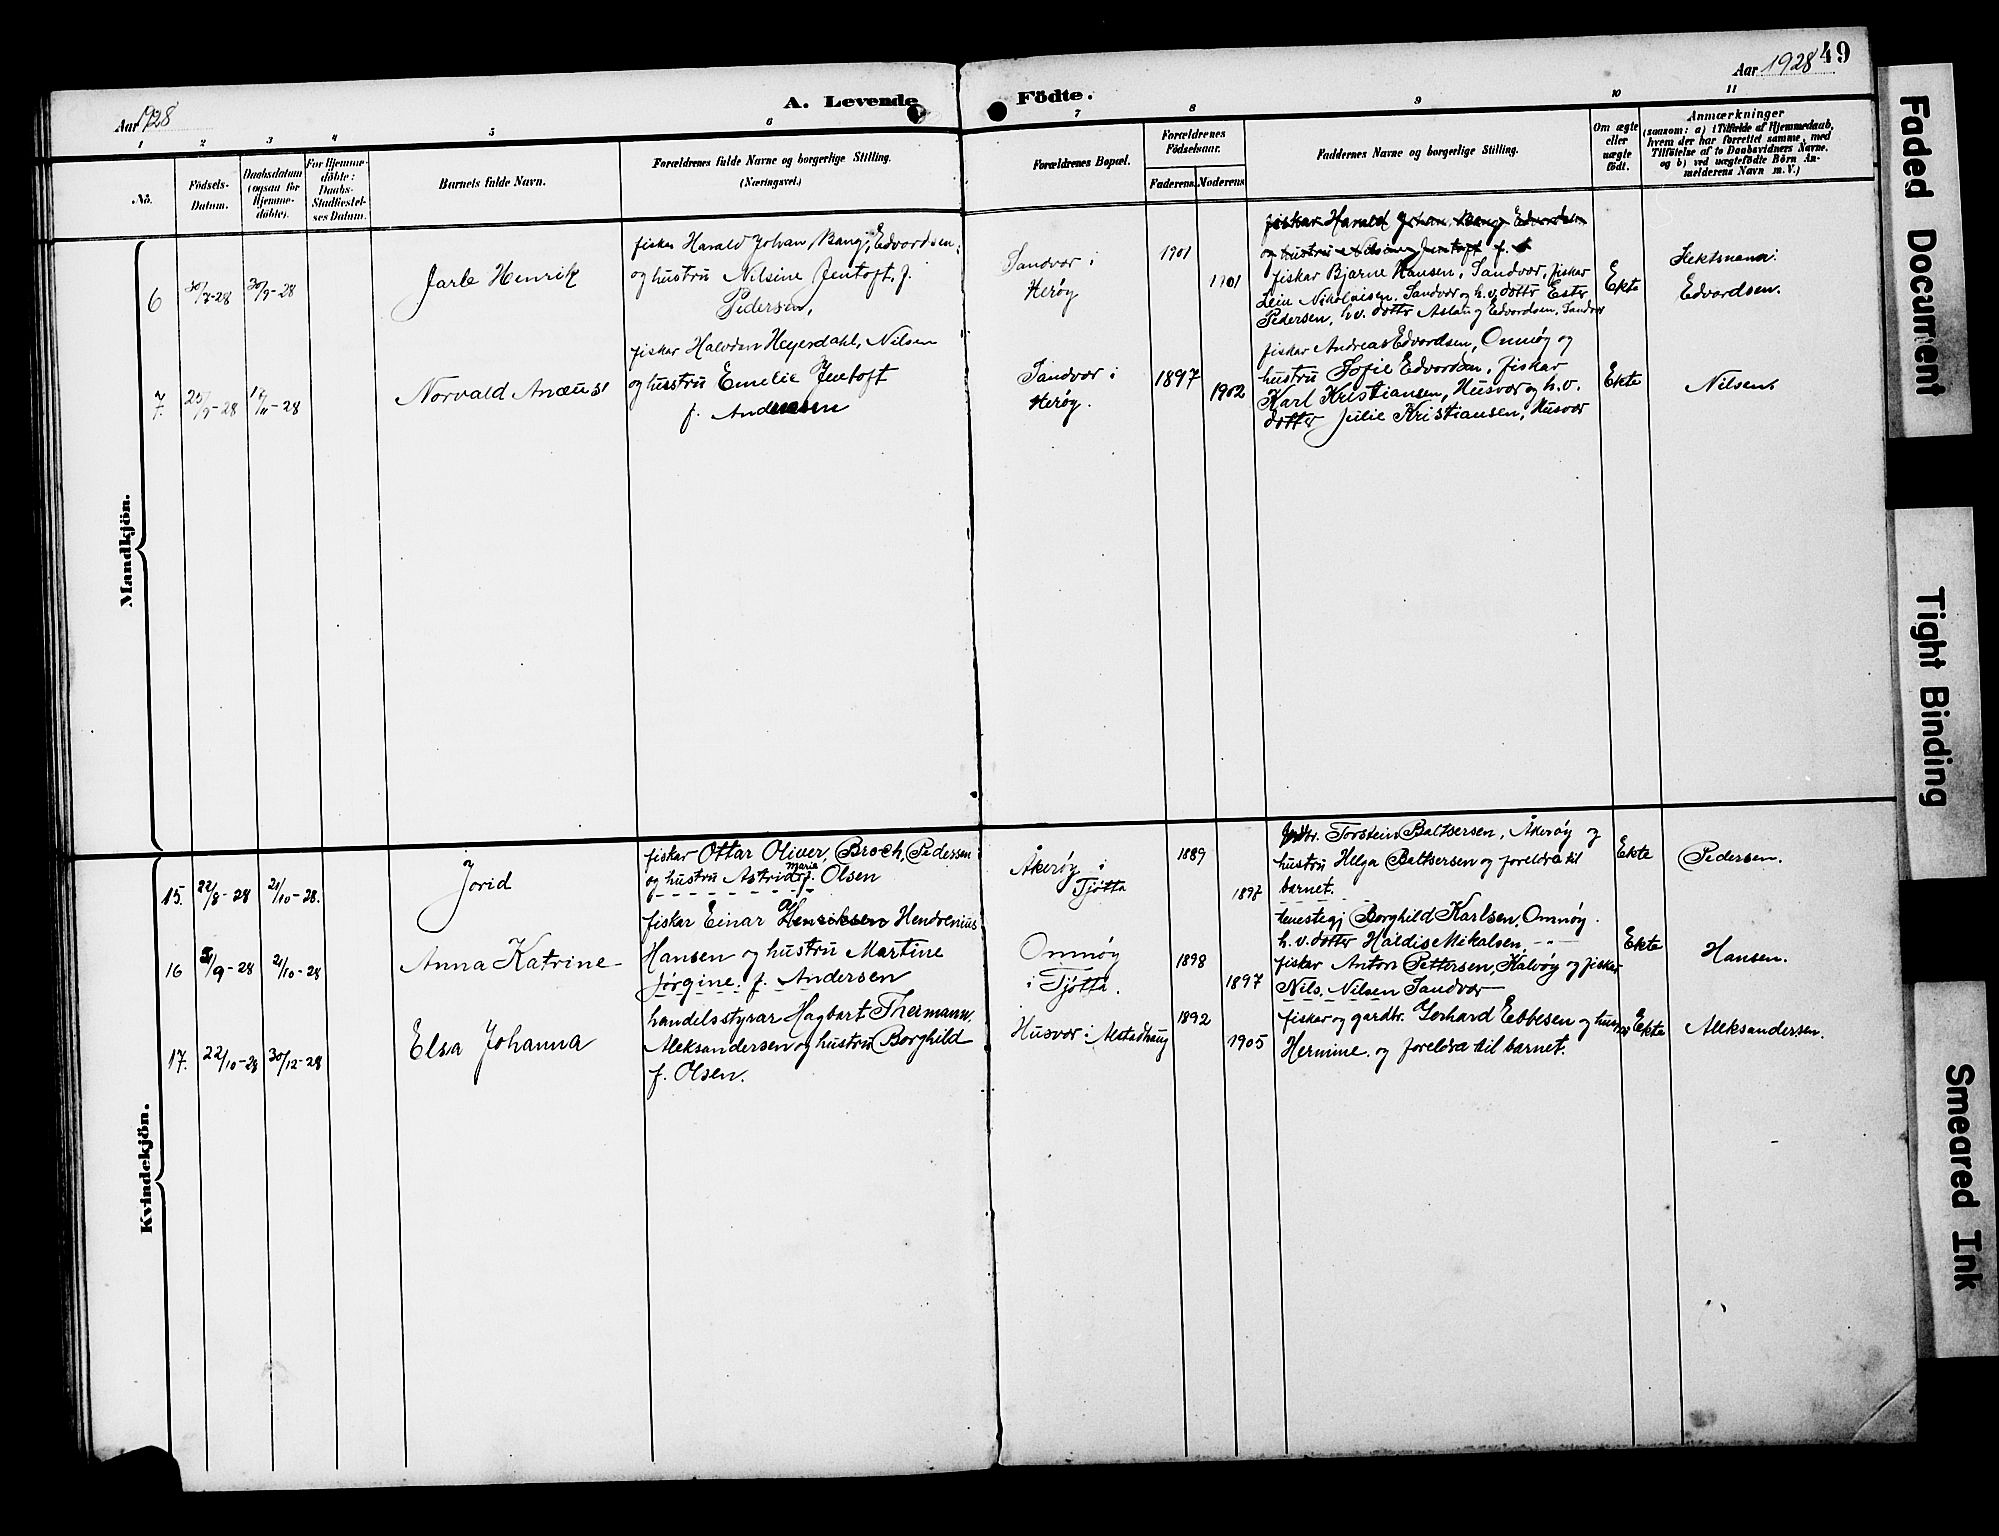 Aar 1928
A. Levende Födte.
Aar 1928 49
1 2 3 4 5 6 7 8 9 10 11
No.
Födsels-Datum.
Daabsdatum (ogsaa for Hjemme-döbte).
For Hjemme-döbte: Daabs-Stadfæstel-ses Datum.
Barnets fulde Navn.
Forældrenes fulde Navne og borgerlige Stilling.
(Næringsvei.)
Forældrenes Bopæl.
Forældrenes Födselsaar.
Faderens. Moderens
Faddernes Navne og borgerlige Stilling.
Om ægte eller uægte födt.
Anmærkninger
(saasom: a) i Tilfælde af Hjemmedaab,
hvem der har forrettet samme, med
Tilföielse af to Daabsvidners Navne.
og b) ved uægtefödte Börn An-
melderens Navn m. V.)
Mandkjön.
6 30/7-28 30/9-28 Jarle Henrik
fisker Harald Johan, Bang, Edvordsen
og hustru Nilsine Jentoft, f.
Pedersen,
Sandvær i
Herøy
1901
1901
fiskar Harald Johan Bang Edvordsen
og hustru Nilsine Jentoft f.
fiskar Bjarne Hansen, Sandvær, fiskar
Nikolaisen. Sandvær og h.v. dottr Ester
Pedersen, h.v. dottr Aslaug Edvordsen, Sandvær
Ekte
Edvordsen.
7. 25/9-28 /11-28 Norvald Anæus
fiskar Halvdan Heyerdahl, Nilsen
og husstru Emelie Jentoft
f. Andersen
Sandvær i
Herøy.
1897
1902
fiskar Andreas Edvordsen, Omnøy og
hustru Sofie Edvordsen, fiskar
Karl Kristiansen, Husvær og h.v.
dotter Julie Kristiansen, Husvær
Ekte
Nilsen
Kvindekjön.
15. 22/8-28 21/10-28. Jorid
fiskar Ottar Oliver, Broch, Pedersen
og hustru Astrid Marie f. Olsen
Åkerøy i
Tjøtta
1889
1897
Torstein Baltsersen, Åkerøy og
hustru Helga Baltsersen og foreldra til
barnet.
Ekte
Pedersen.
16 /9-28 21/10-28 Anna Katrine
fiskar Einar Henriksen Hendvenius
Hansen og hustru Martine
Jørgine. f. Andersen
Omnøy
i Tjøtta.
1898
1897
tenestegj Borghild Karlsen, Omnøy.
h.v. dotter Haldis Mikalsen, -"-
fiskar Anton Pettersen, Kalvøy og fiskar
Nils. Nilsen Sandvær
Ekte
Hansen.
17. 22/10-28 30/12-28 Elsa Johanna
handelsstyrar Hagbart Thermann.
Aleksandersen og hustru Borghild
f. Olsen.
Husvær i Alstadhaug
1892
1905
fiskar og gardbr. Gerhard Ebbesen og hustru
Hermine. og foreldra til barnet.
Ekte
Aleksandersen.
Faded Document
Tight Binding
Smeared Ink